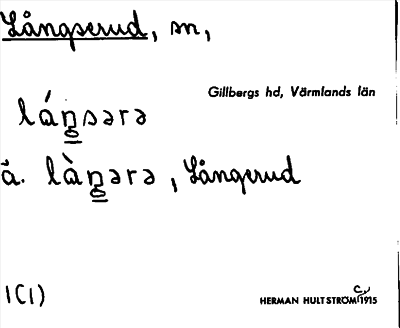 Långserud, sn,
Gillbergs hd, Värmlands län
lán̲sərə
ä. làn̲ərə, Långerud
1(1)
HERMAN HULTSTRÖM 1915